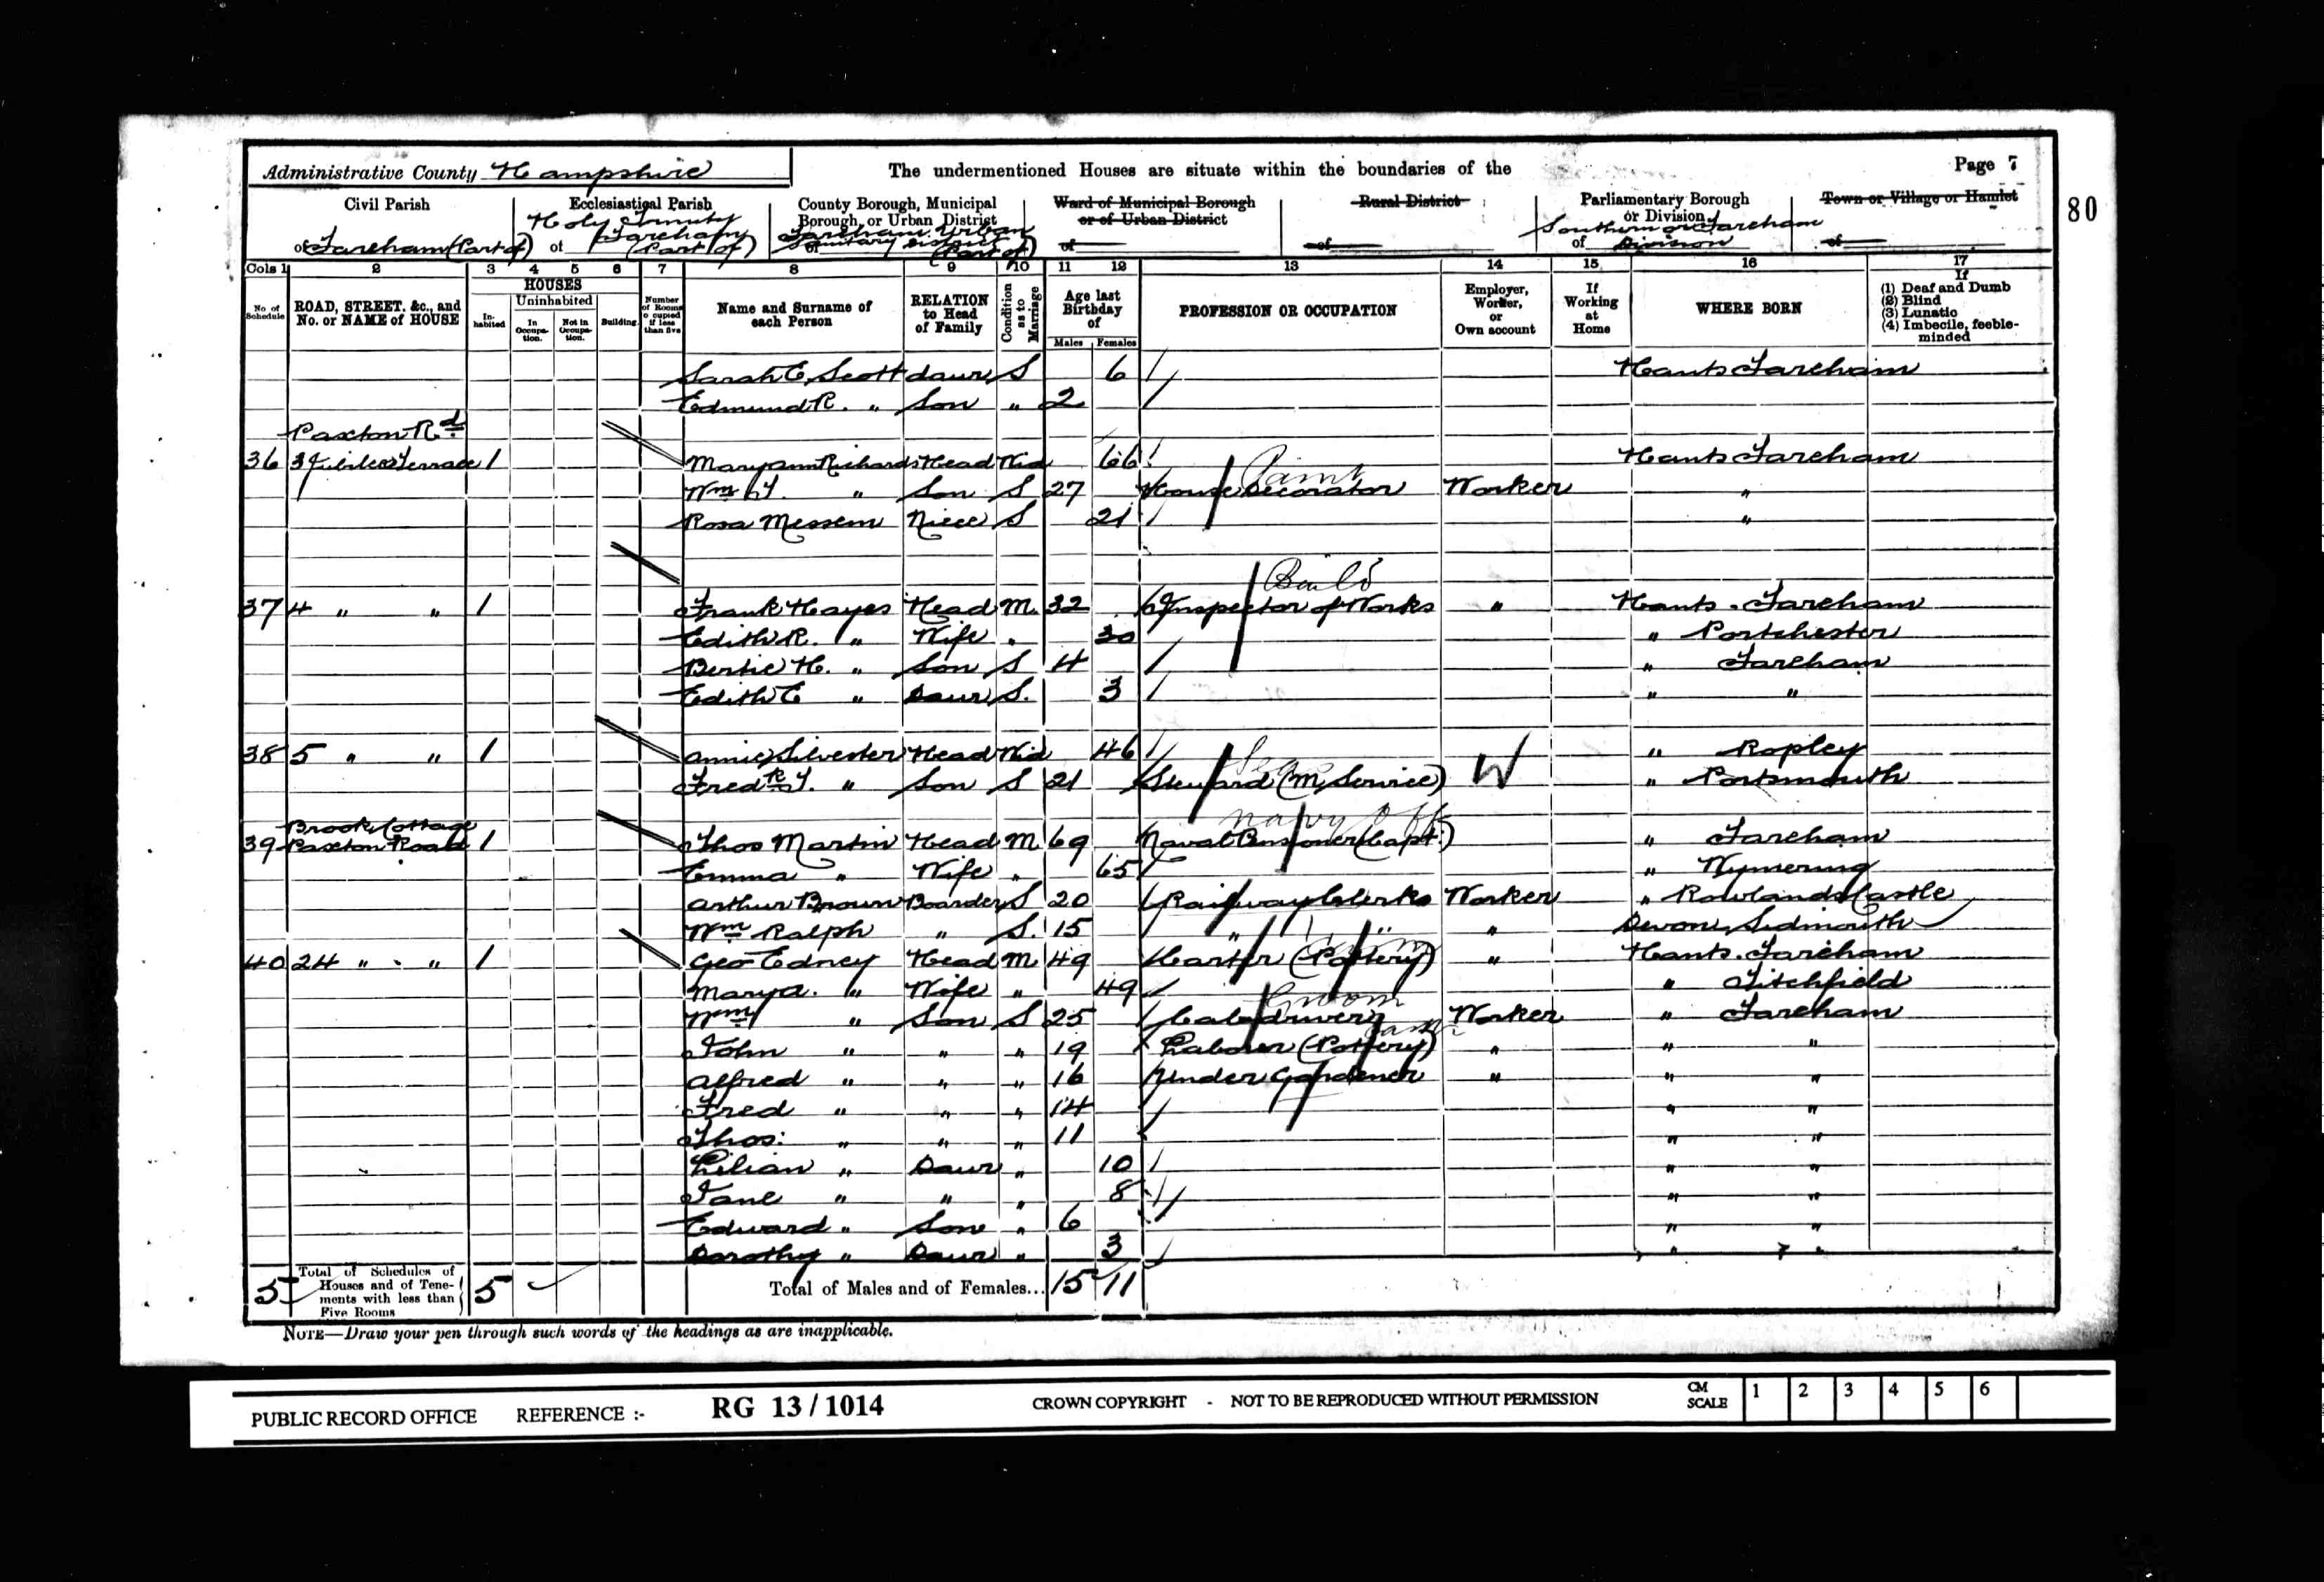 Administrative County Hampshire The undermentioned Houses are situate within the boundaries of the Page 7
80
Civil Parish Ecclesiastical Parish County Borough, Municipal Borough, or Urban District Ward of Municipal Borough or of Urban District Rural District Parliamentary Borough or Division Town or Village or Hamlet
of Fareham (Part of) of Holy Trinity Fareham (Part of) of Fareham Urban Sanitary District (Part of) of of of Southern or Fareham Division of
Cols 1 2 3 4 5 6 7 8 9 10 11 12 13 14 15 16 17
No of Schedule ROAD, STREET, &c., and No. or NAME of HOUSE HOUSES Inhabited Uninhabited In Occupation. Not in Occupation. Building Number of Rooms occupied if less than five Name and Surname of each Person RELATION to Head of Family Condition as to Marriage Age last Birthday of Males Females PROFESSION OR OCCUPATION Employer, Worker, or Own account If Working at Home WHERE BORN If (1) Deaf and Dumb (2) Blind (3) Lunatic (4) Imbecile, feeble-minded
Sarah E. Scott daur S 6 Hants Fareham
Edmund R. " Son " 2
Paxton Rd
36 3 Jubilee Terrace 1 Mary Ann Richards Head Wid 66 Hants Fareham
Paint
Wm " Son S 27 House Decorator Worker "
Rosa Messem Niece S 21 "
Build
37 4 " " 1 Frank Hayes Head M. 32 Inspector of Works " Hants. Fareham
Edith R. " Wife " 30 " Portchester
Bertie H. " Son S 4 " Fareham
Edith E " Daur S. 3 " "
38 5 " " 1 Annie Silvester Head Wid 46 " Ropley
Fredk J. " Son S 21 Steward (M. Service) W " Portsmouth
Navy Off
39 Brook Cottage Paxton Road 1 Thos Martin Head M 69 Naval Pensioner (Capt.) " Fareham
Emma " Wife " 65 " Wymering
Arthur Brown Boarder S 20 Railway Clerks Worker " Rowlands Castle
Wm Ralph " S. 15 " " " Devon, Sidmouth
40 24 " " 1 Geo Edney Head M 49 Karter (Pottery) " Hants. Fareham
Mary A. " Wife " 49 " Titchfield
Groom
Wm " Son S 25 Cabdriver Worker " Fareham
John " " " 19 Laborer (Pottery) " " "
Alfred " " " 16 Under Gardener " " "
Fred " " " 14 " "
Thos: " " " 11 " "
Lilian " Daur " 10 " "
Jane " " " 8 " "
Edward " Son " 6 " "
Dorothy " Daur " 3 " "
5 Total of Schedules of Houses and of Tenements with less than Five Rooms 5 Total of Males and of Females... 15 11
NOTE—Draw your pen through such words of the headings as are inapplicable.
PUBLIC RECORD OFFICE REFERENCE :- RG 13 / 1014 CROWN COPYRIGHT - NOT TO BE REPRODUCED WITHOUT PERMISSION CM SCALE 1 2 3 4 5 6